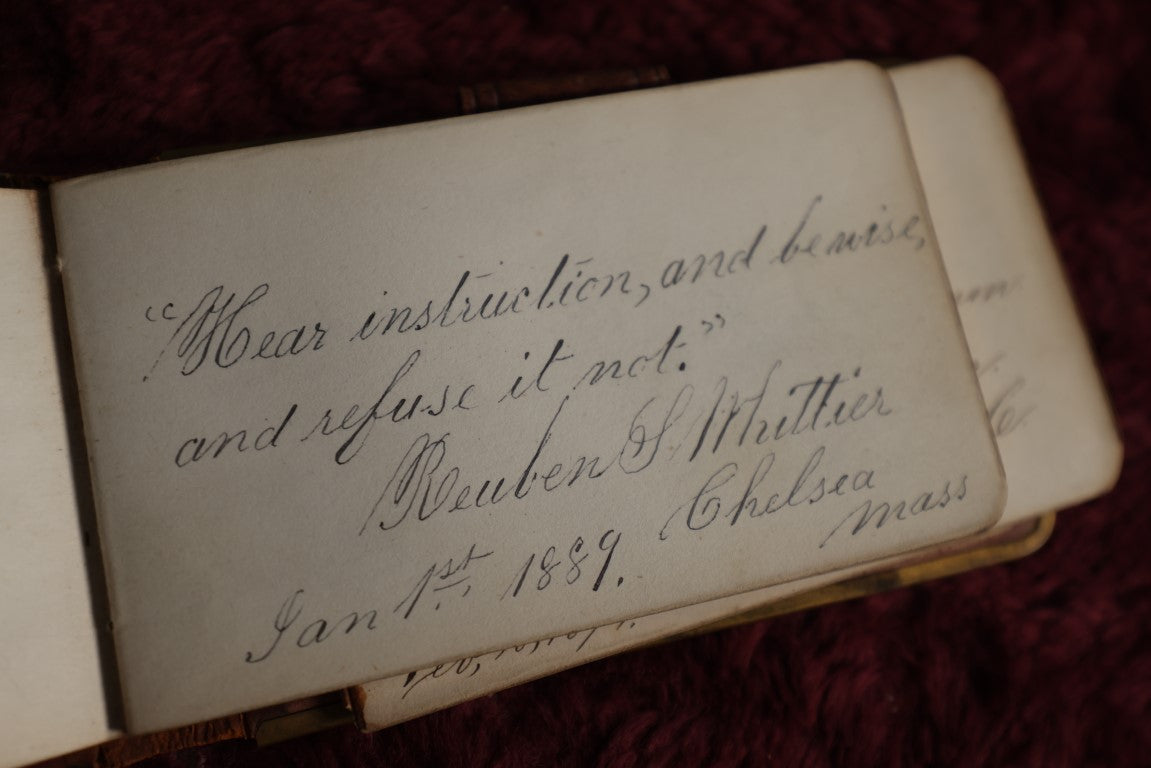 "Hear instruction, and be wise,
and refuse it not."
Reuben S. Whittier
Chelsea
Mass
Jan 1st, 1889.